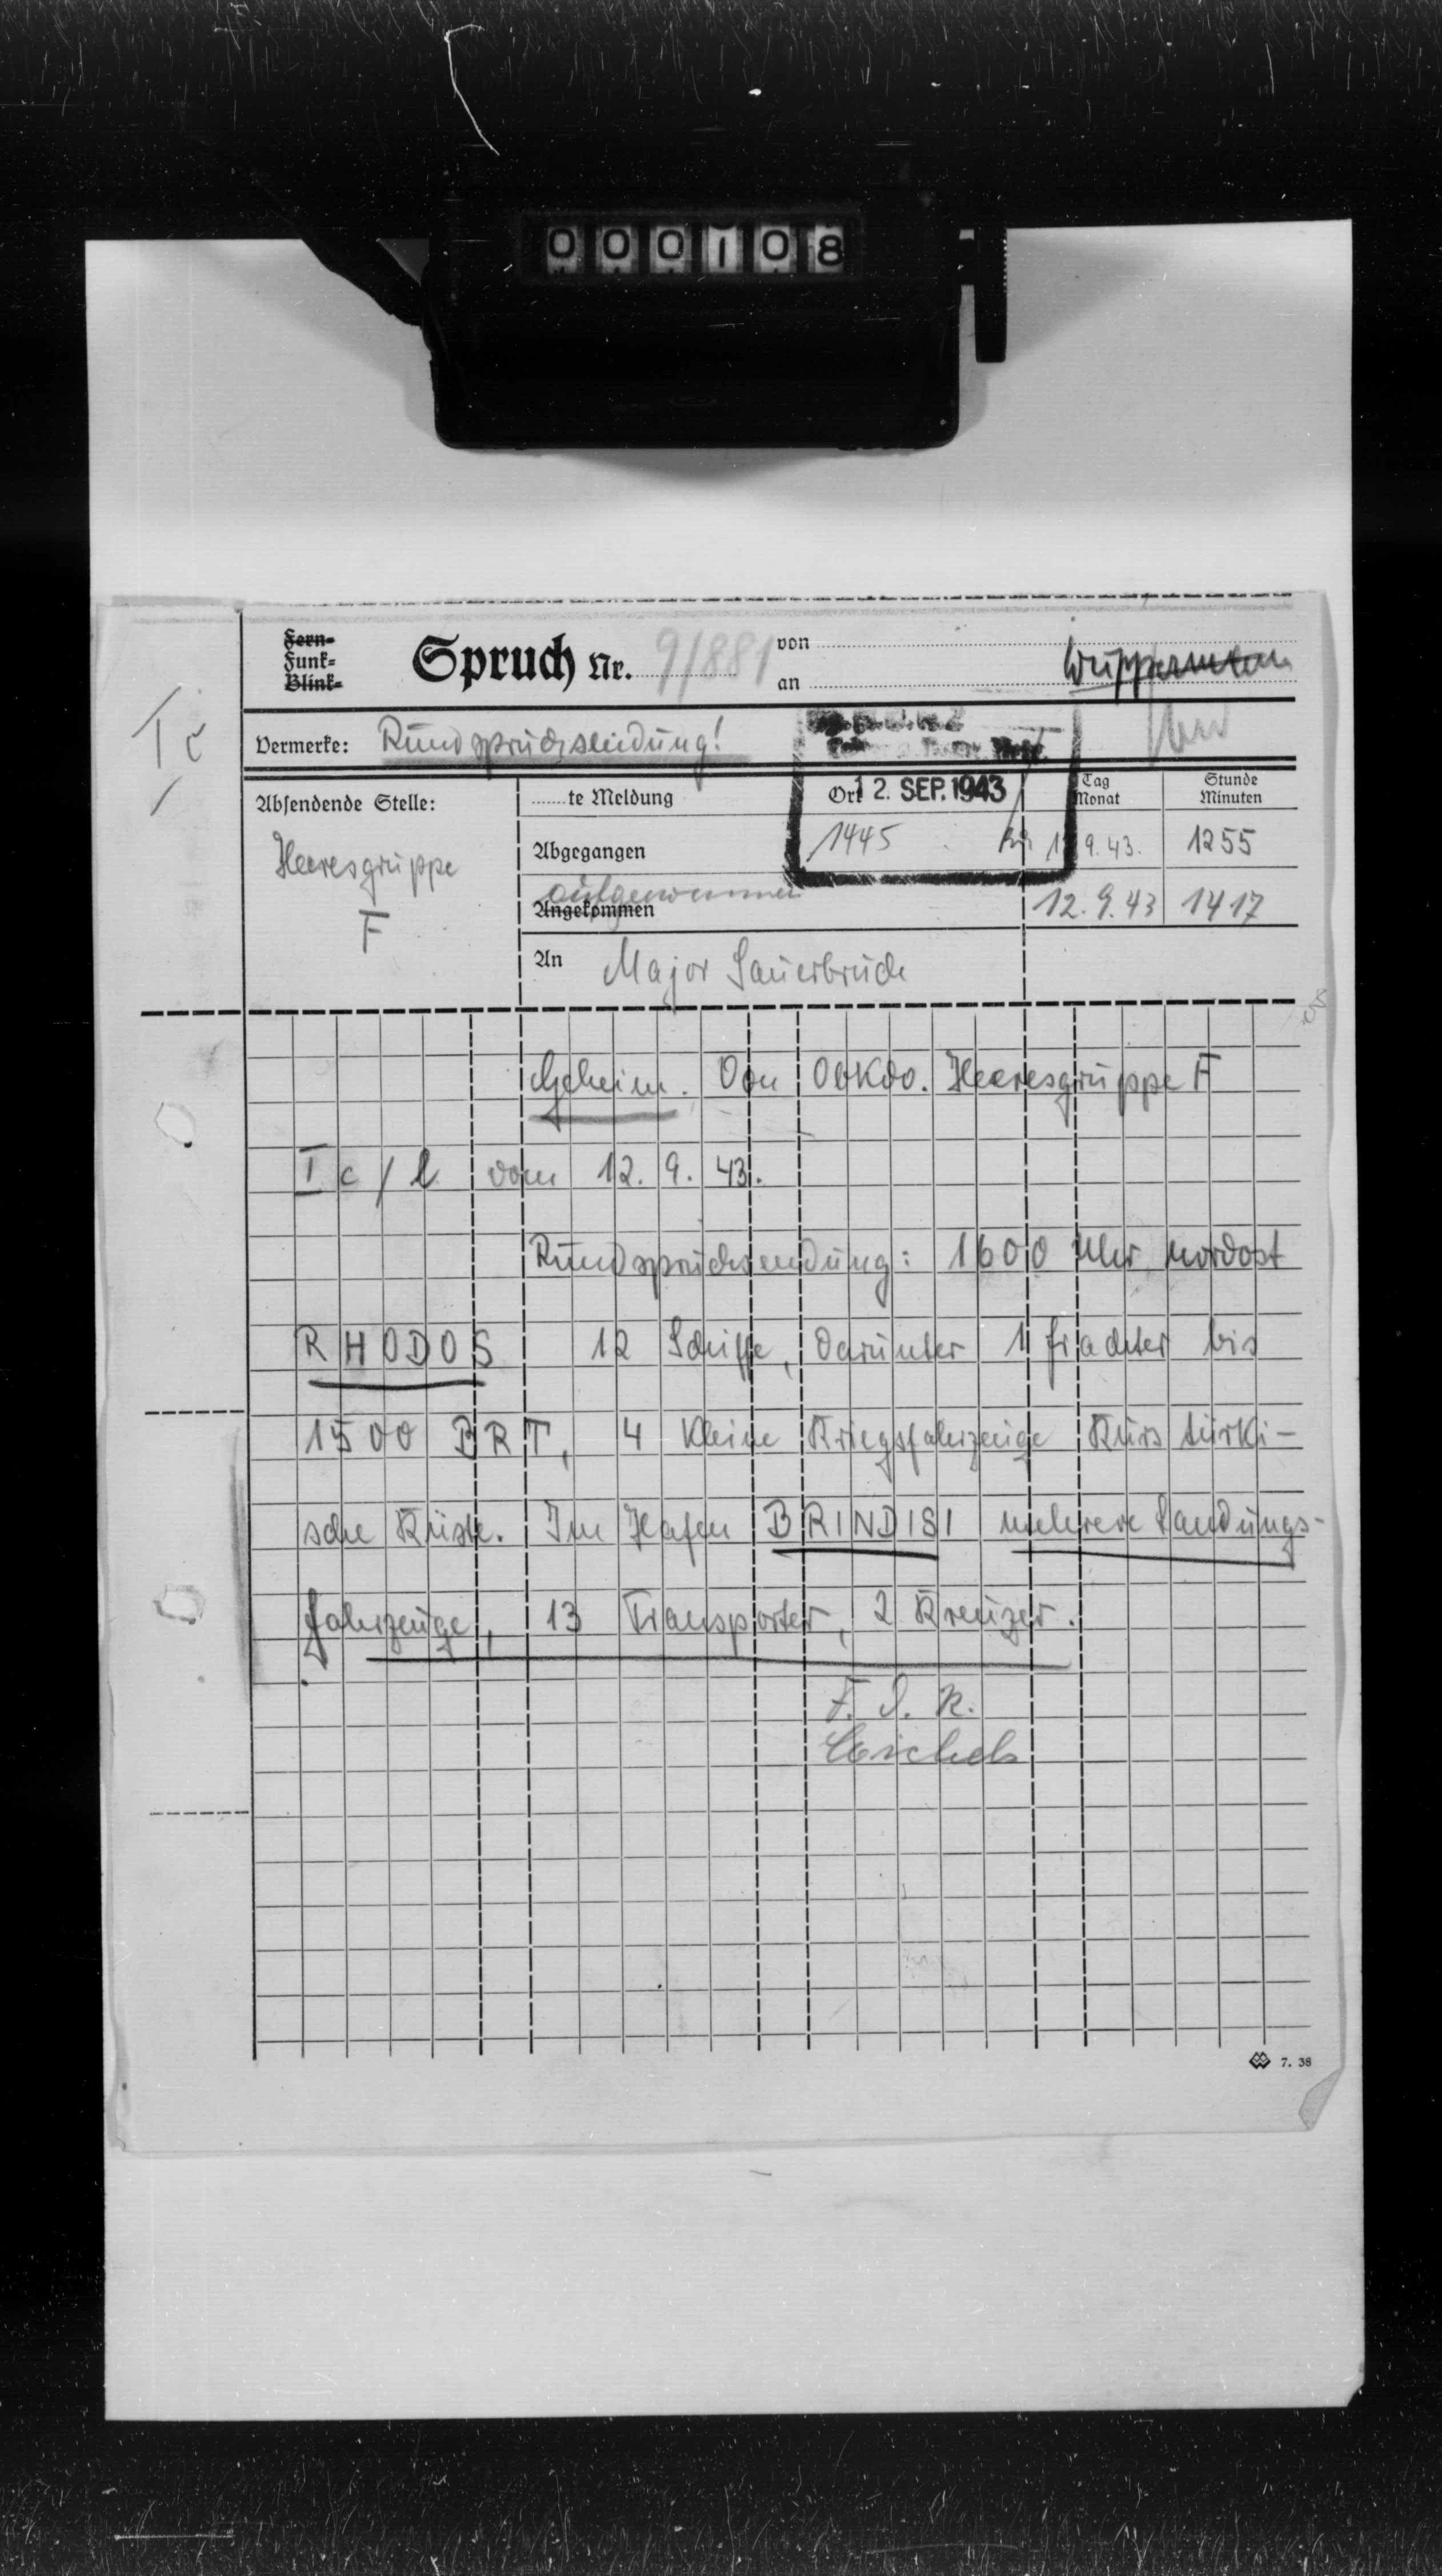 000108
Fern-
Funk-
Blink-
Spruch Nr. 9/881
von
an
Ic
Vermerke: Rundspruchsendung!
Absendende Stelle:
Heeresgruppe
F
te Meldung
Ort
12. SEP. 1943
Tag
Monat
Stunde
Minuten
Abgegangen
1445
12.9.43. 1255
aufgenommen
Angekommen
12.9.43 1417
An Major Sauerbruch
Geheim. Von ObKdo. Heeresgruppe F
Ic/l vom 12.9.43.
Rundspruchsendung: 1600 Uhr nordost
RHODOS 12 Schiffe, darunter 1 Frachter bis
1500 BRT, 4 kleine Kriegsfahrzeuge Kurs türki-
sche Küste. Im Hafen BRINDISI mehrere Landungs-
fahrzeuge, 13 Transporter, 2 Kreuzer.
F. d. R.
7. 38